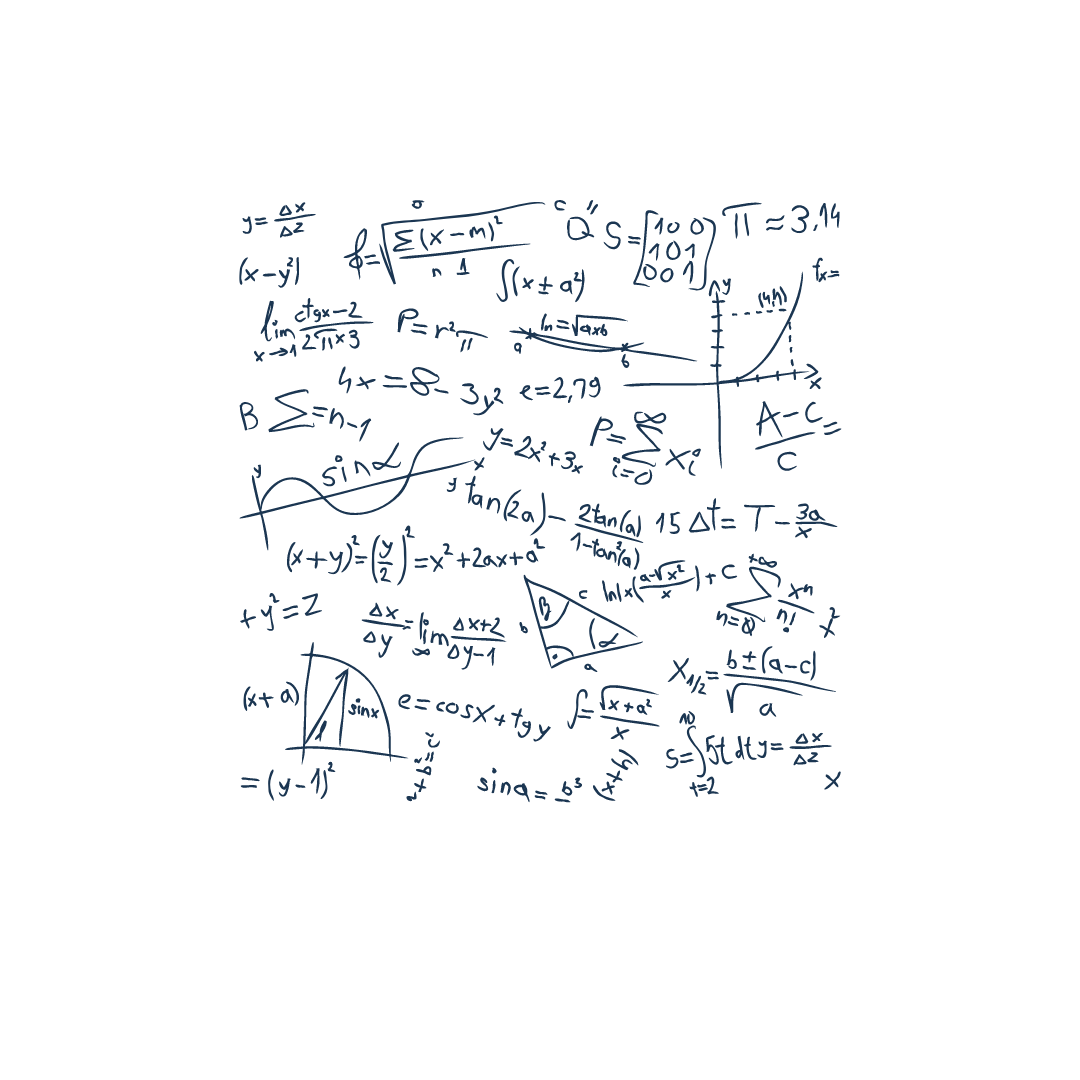 y = Δx/Δz
σ
f = √(Σ(x − m)²
n 1
c Q" S = [10 0
1 0 1
00 1]
π ≈ 3,14
(x − y²)
∫(x ± a²)
y
(4,4)
fx =
x
lim x→1 ctgx − 2 / 2π × 3
P = r²π
ln = √axb
a
b
4x = 8 − 3y² e = 2,79
B Σ = n − 1
y = 2x² + 3x
P = Σ i=0 ∞ xi
A − C / C =
y sinα x
y tan(2a) − 2tan(a) / 1 − tan²(a)
15 Δt = T − 3a/x
(x + y)² = (y/2)² = x² + 2ax + a²
c ln|x(a−√x²/x) + C
Σ n=0 +∞ xⁿ/n! x²
+ y² = Z
Δx/Δy = lim ∞ Δx+2/Δy−1
β b α a
X1/2 = b ± (a − c) / √a
(x + a) sinx
e = cosx + tg y
∫ = √x + a² / x
S = ∫ t=2 10 5t dt y = Δx/Δz
= (y − 1)²
sina = b³
(x+h)
x